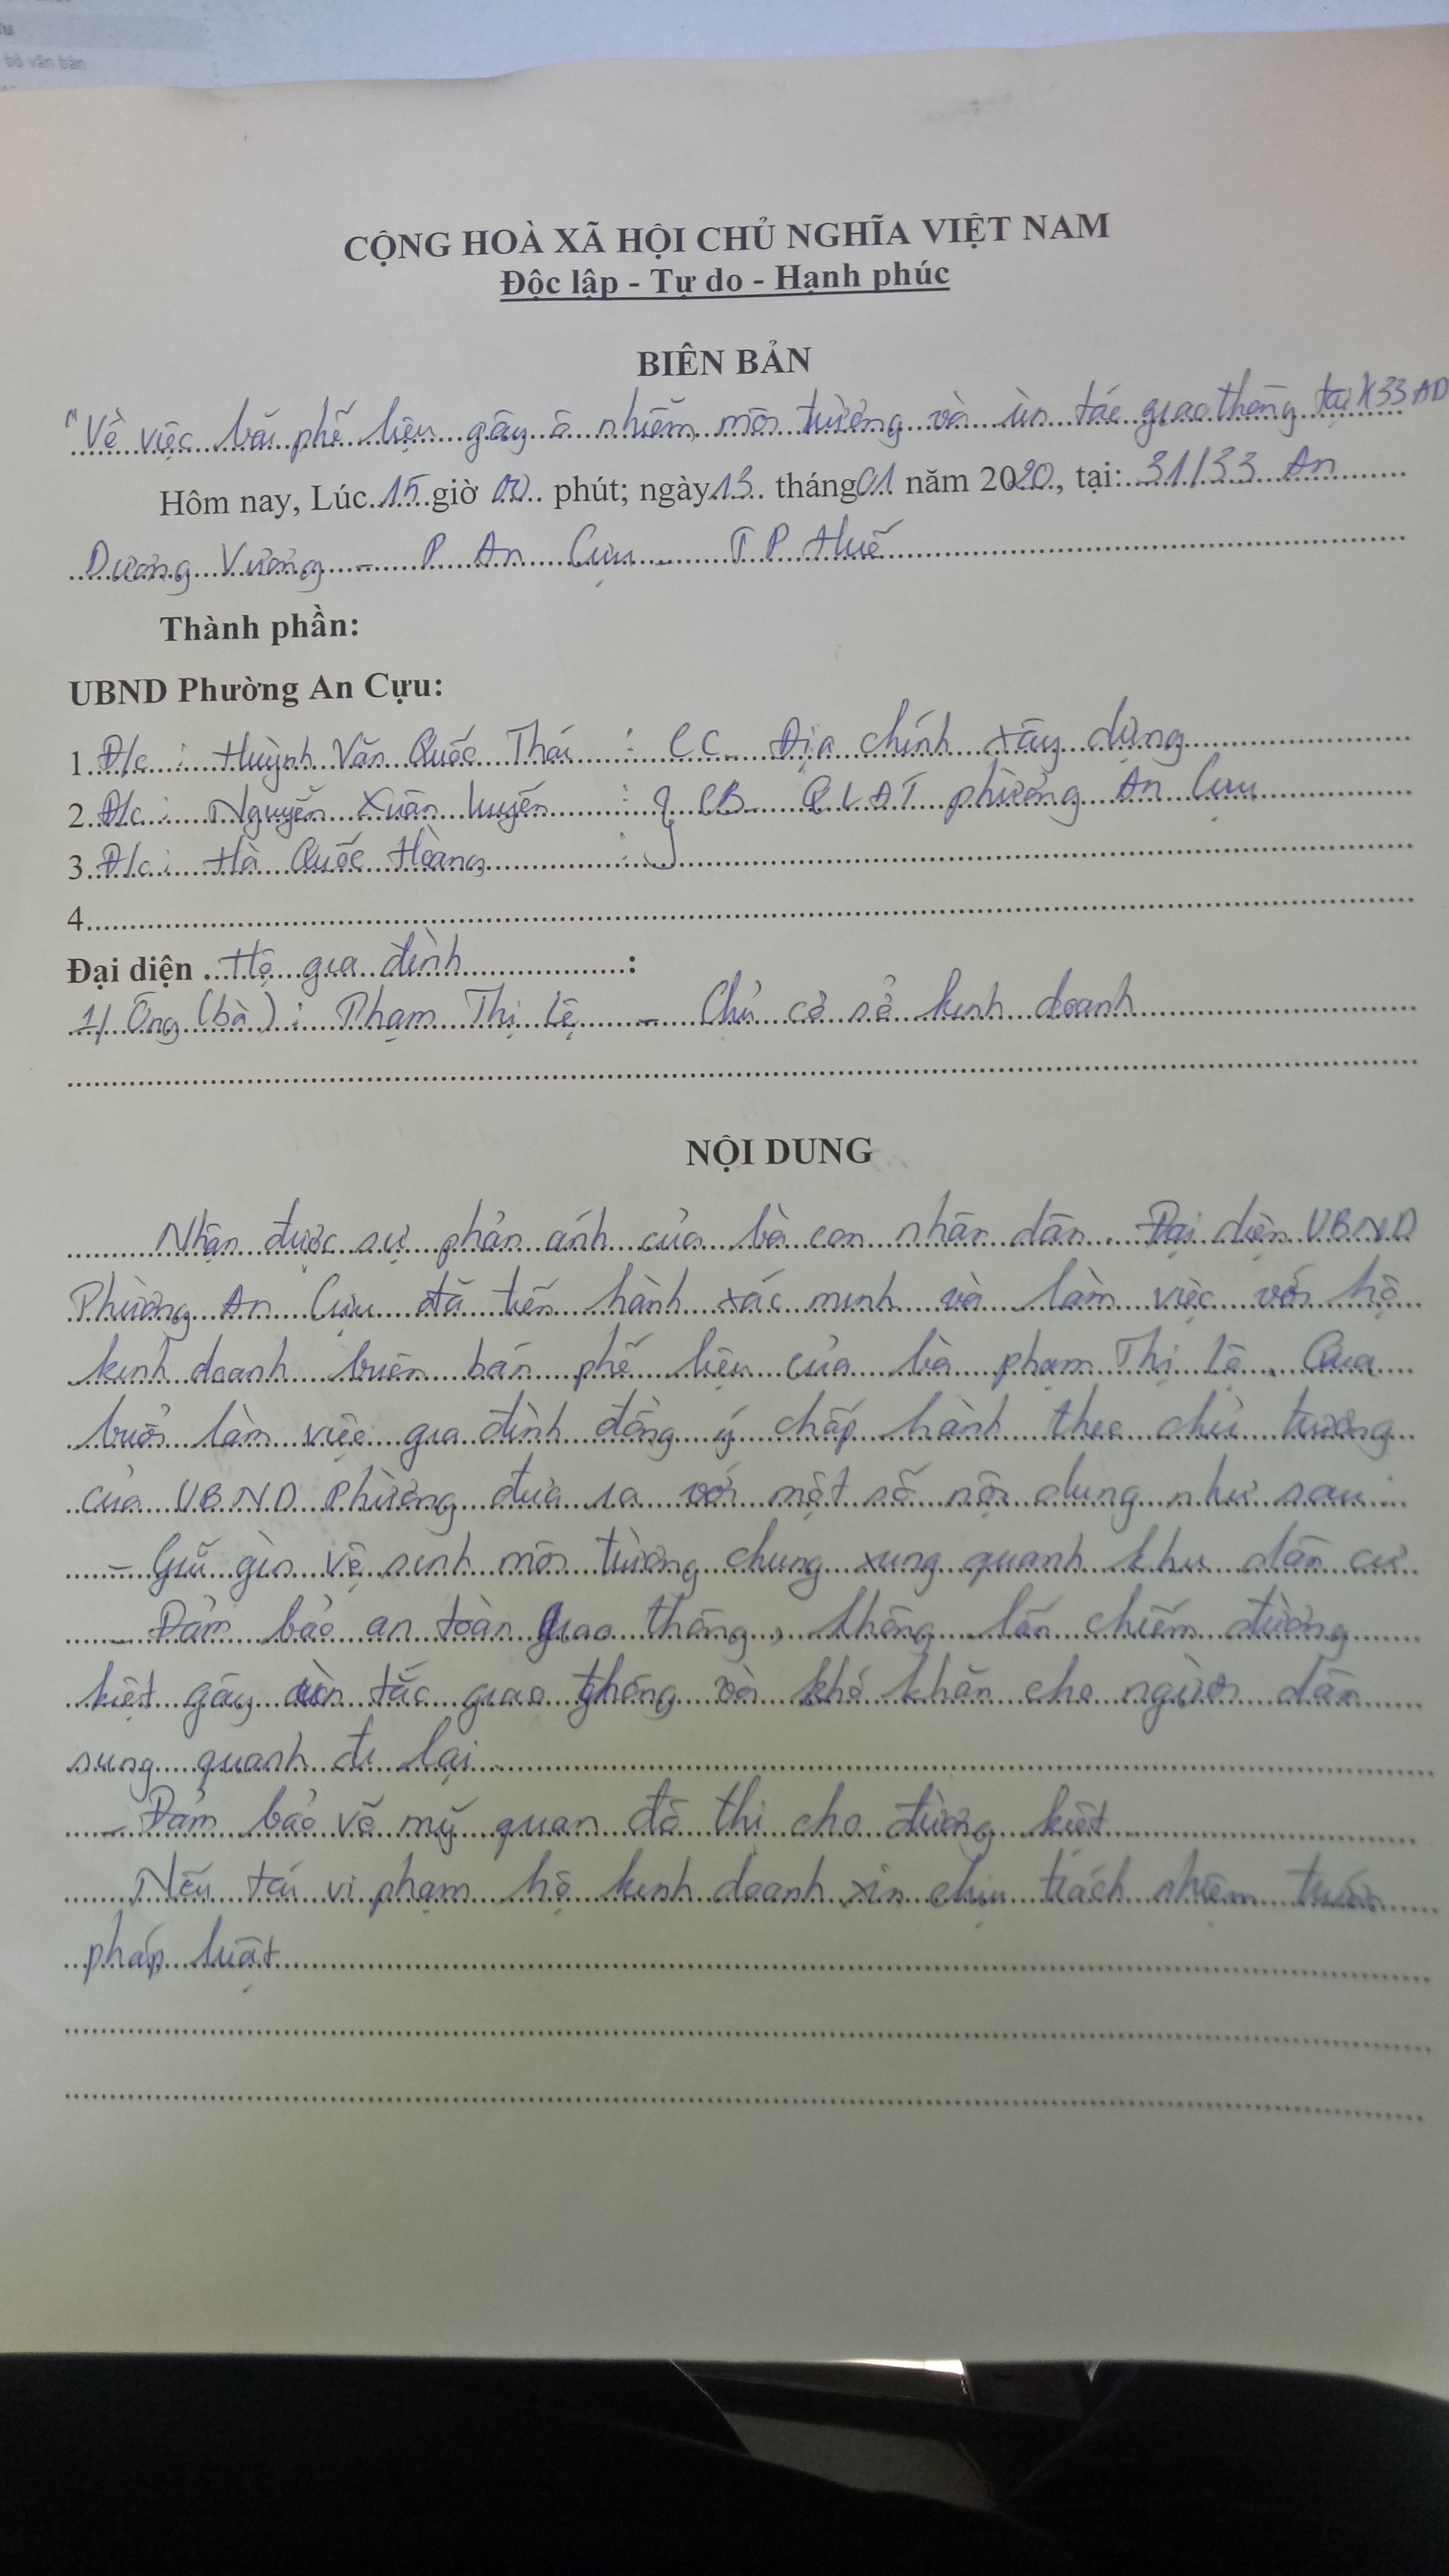 bộ văn bản
CỘNG HOÀ XÃ HỘI CHỦ NGHĨA VIỆT NAM
Độc lập - Tự do - Hạnh phúc
BIÊN BẢN
"Về việc bãi phế liệu gây ô nhiễm môi trường và ùn tắc giao thông tại K33 AD
Hôm nay, Lúc 15 giờ 00 phút; ngày 13 tháng 01 năm 2020, tại: 31/33 An
Dương Vương - P An Cựu - TP Huế
Thành phần:
UBND Phường An Cựu:
1. Đ/c : Huỳnh Văn Quốc Thái : CC Địa chính xây dựng
2. Đ/c : Nguyễn Xuân Luyến : } CB QLĐT phường An Cựu
3. Đ/c : Hà Quốc Hoàng :
4.
Đại diện Hộ gia đình :
1/ Ông (bà) : Phạm Thị Lệ - Chủ cơ sở kinh doanh
NỘI DUNG
Nhận được sự phản ánh của bà con nhân dân. Đại diện UBND
Phường An Cựu đã tiến hành xác minh và làm việc với hộ
kinh doanh buôn bán phế liệu của bà phạm Thị Lệ. Qua
buổi làm việc gia đình đồng ý chấp hành theo chủ trương
của UBND Phường đưa ra với một số nội dung như sau :
- Giữ gìn vệ sinh môi trường chung xung quanh khu dân cư
- Đảm bảo an toàn giao thông, không lấn chiếm đường
kiệt gây ùn tắc giao thông và khó khăn cho người dân
sung quanh đi lại
- Đảm bảo vẽ mỹ quan đô thị cho đường kiệt
Nếu tái vi phạm hộ kinh doanh xin chịu trách nhiệm trước
pháp luật